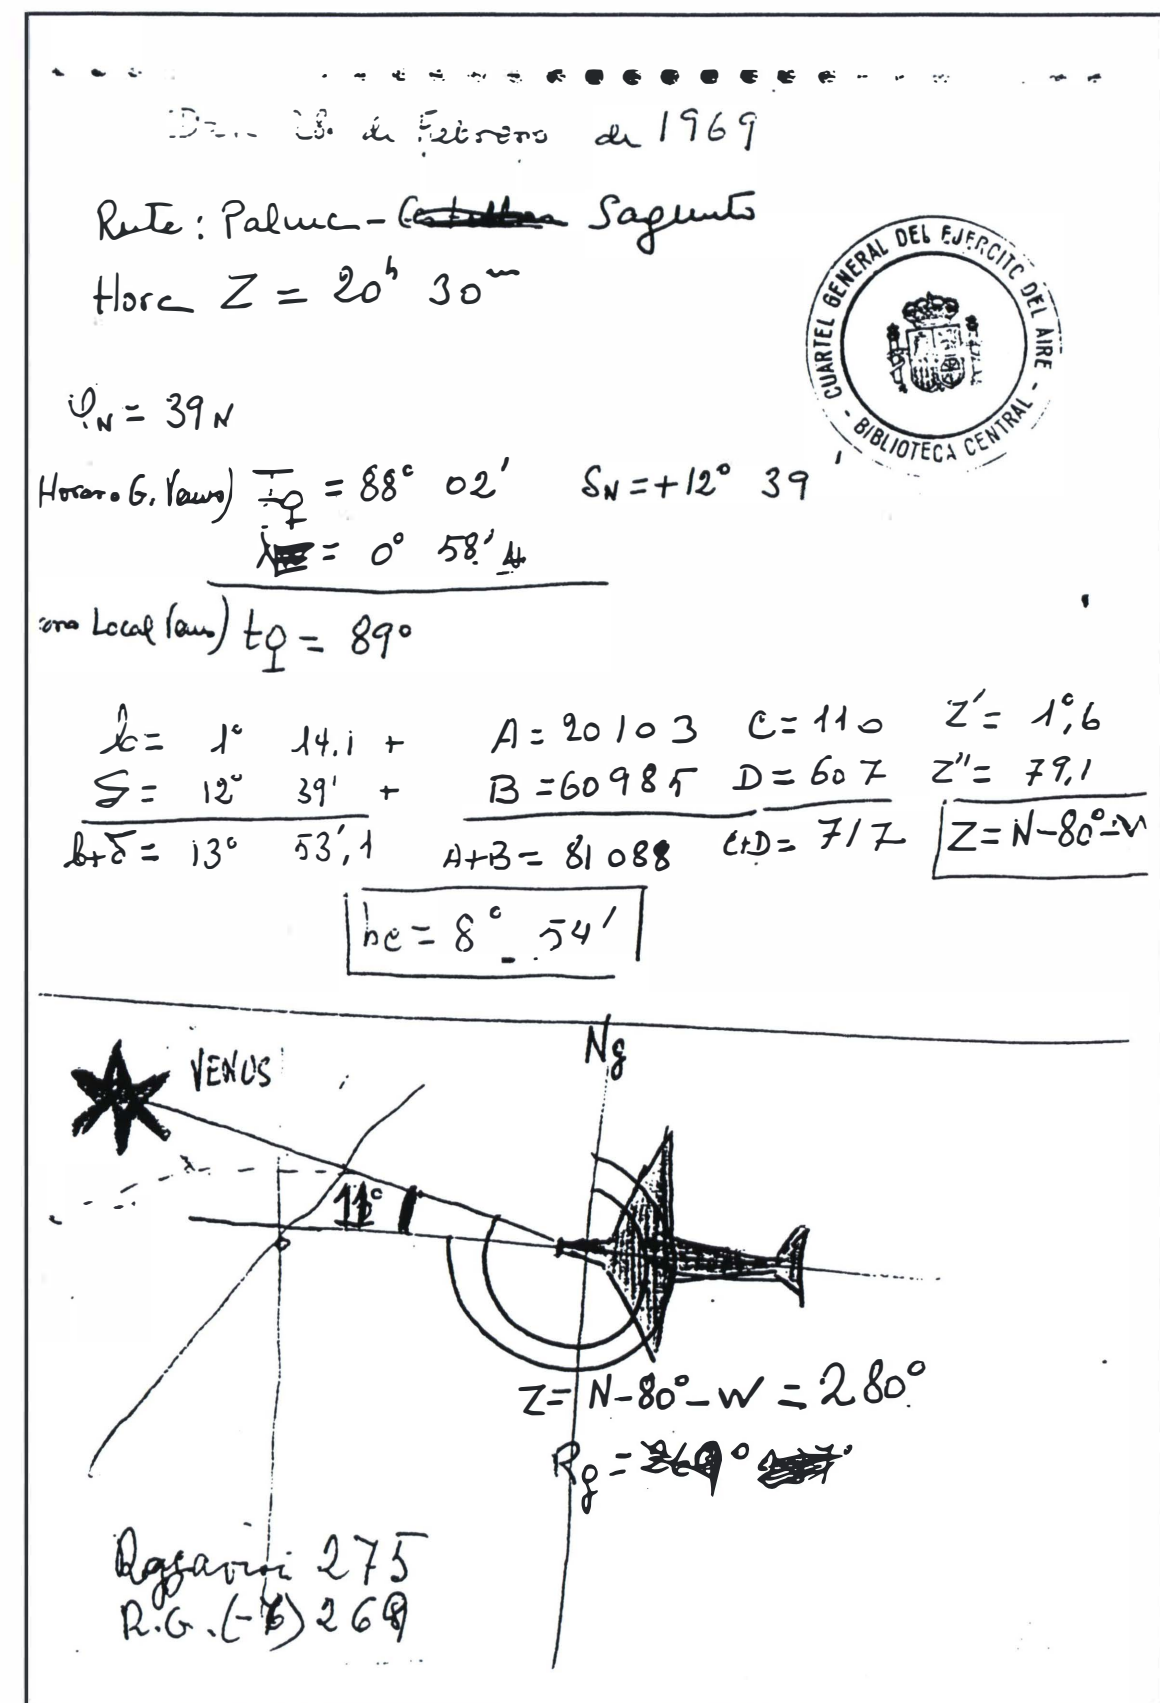 28 de Febrero de 1969
Ruta: Palma - Sagunto
Hora Z = 20h 30m
CUARTEL GENERAL DEL EJERCITO DEL AIRE
- BIBLIOTECA CENTRAL -
φN = 39 N
Horario G. Venus) T♀ = 88° 02' SN = +12° 39'
= 0° 58'
Local Venus) t♀ = 89°
= 1° 14,1 + A = 20103 C = 110 Z' = 1°,6
δ = 12° 39' + B = 60985 D = 607 Z" = 79,1
b+δ = 13° 53',1 A+B = 81088 C+D = 717 Z = N-80°-W
hc = 8° 54'
Ng
VENUS
11°
Z = N-80°-W = 280°
Rg =
275
R.G. (-6) 269